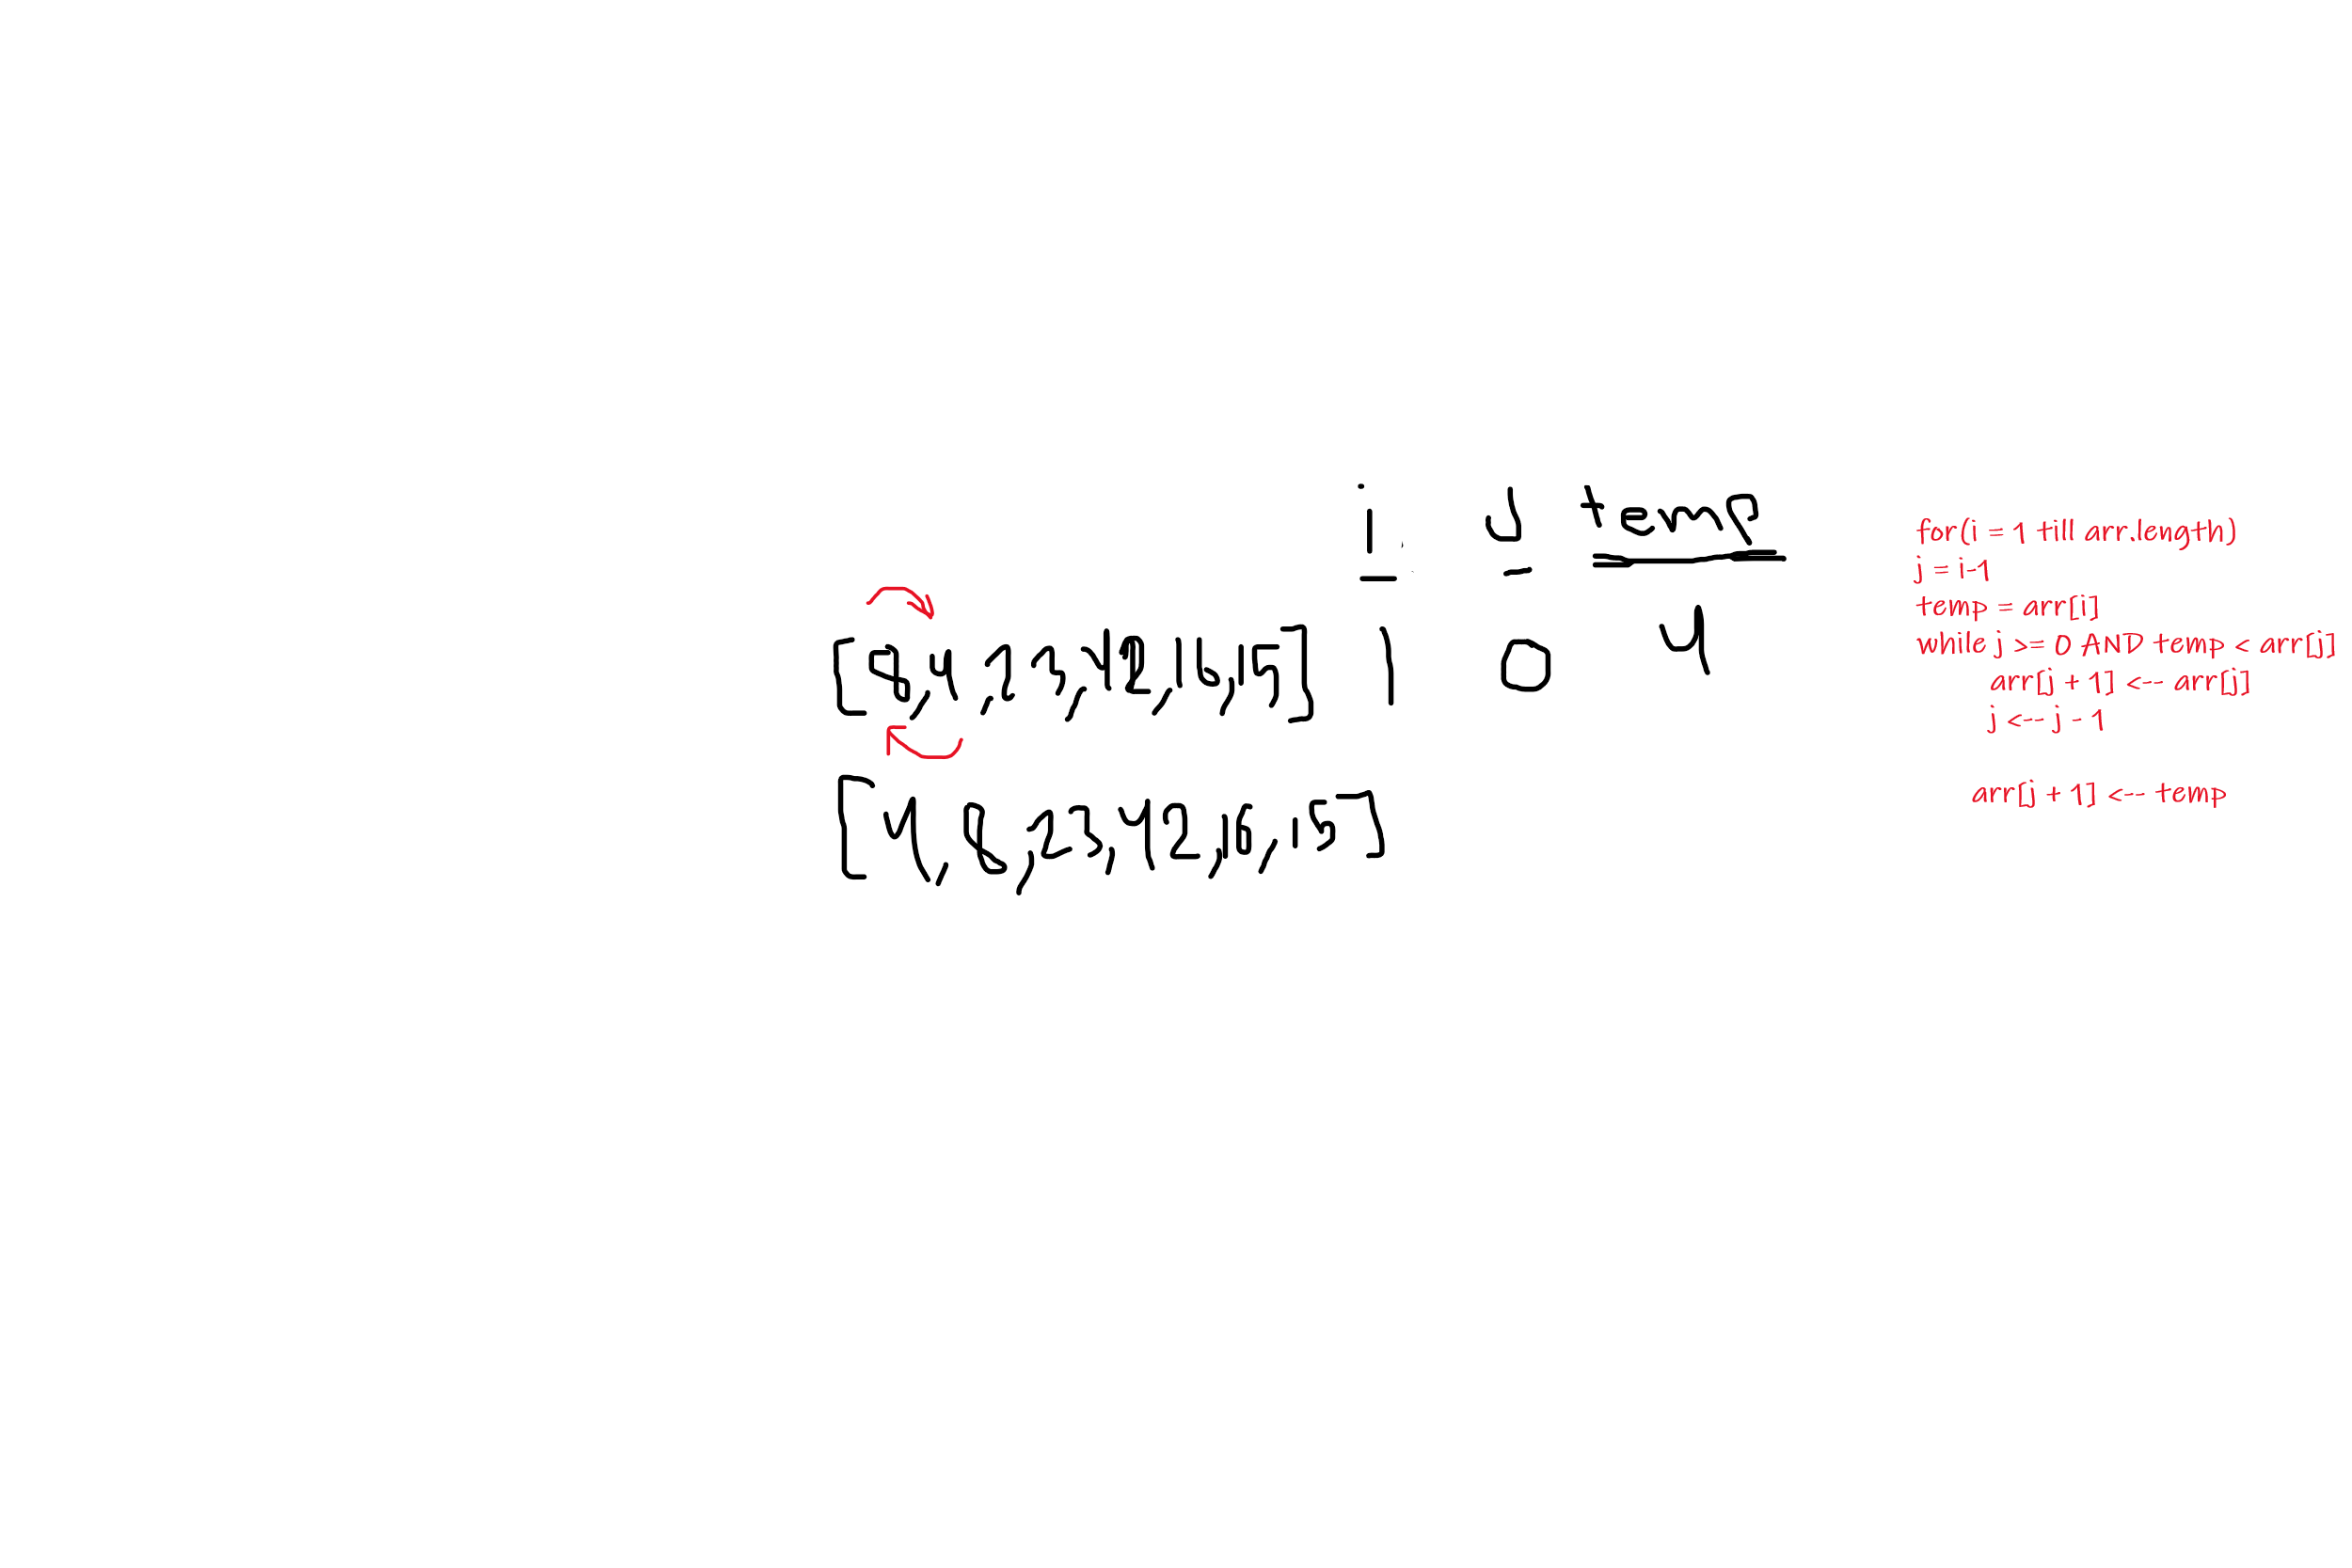 i j temp
[8,4,23,42,16,15] 1 0 4
[4,8,23,42,16,15]
for(i = 1 till arr.length)
j = i-1
temp = arr[i]
while j >= 0 AND temp < arr[j]
arr[j + 1] <-- arr[j]
j <-- j - 1
arr[j + 1] <-- temp